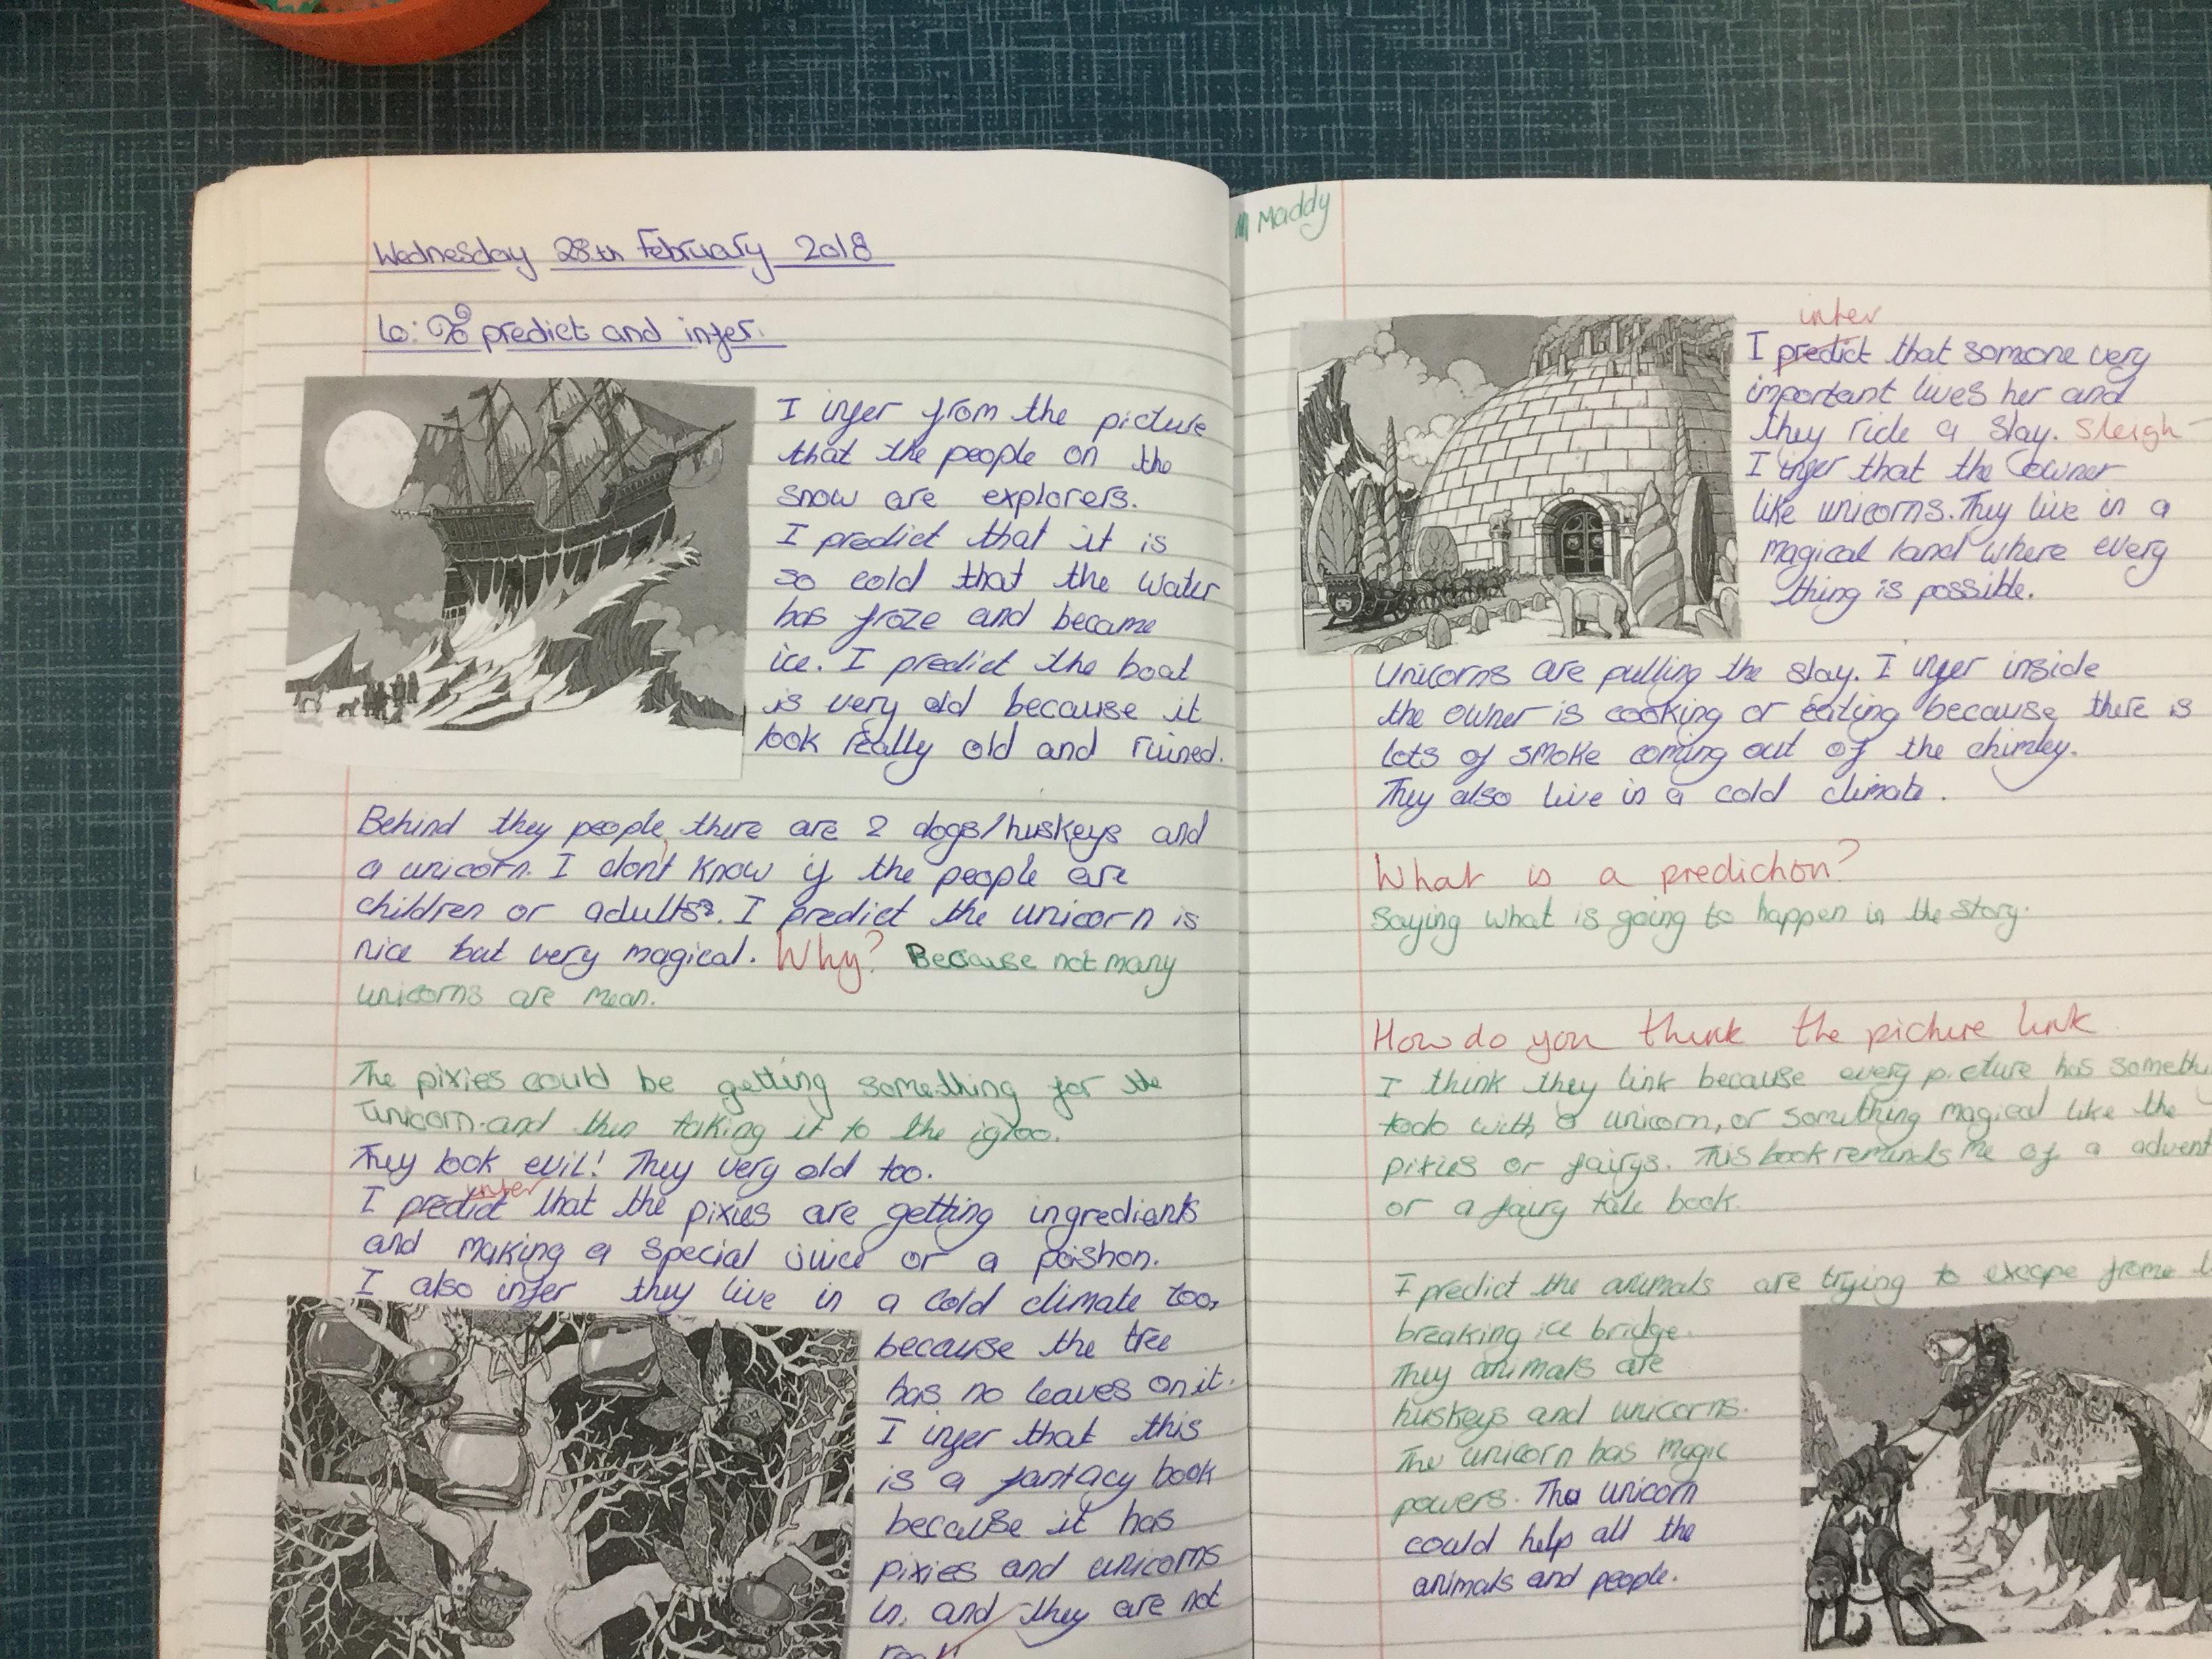 Wednesday 28th February 2018
Lo: To predict and infer.
I infer from the picture
that the people on the
snow are explorers.
I predict that it is
so cold that the water
has froze and became
ice. I predict the boat
is very old because it
look really old and ruined.
Behind they people, there are 2 dogs/huskeys and
a unicorn. I don't know if the people are
children or adults?. I predict the unicorn is
nice but very magical. Why? Because not many
unicorns are mean.
The pixies could be getting something for the
unicorn and then taking it to the igloo.
They look evil! They very old too.
infer
I predict that the pixies are getting ingredients
and making a special juice or a poishon.
I also infer they live in a cold climate too,
because the tree
has no leaves on it.
I infer that this
is a fantacy book
because it has
pixies and unicorns
in, and they are not
Maddy
infer
I predict that somone very
important lives her and
they ride a slay. sleigh
I infer that the owner
like unicorns. They live in a
magical land where every
thing is possible.
Unicorns are pulling the slay. I infer inside
the owner is cooking or eating because there is
lots of smoke coming out of the chimley.
They also live in a cold climate.
What is a prediction?
Saying what is going to happen in the story.
How do you think the picture link
I think they link because every picture has somethi
todo with a unicorn, or something magical like the
pixies or fairys. This book reminds me of a advent
or a fairy tale book.
I predict the animals are trying to excape frome
breaking ice bridge.
They animals are
huskeys and unicorns.
The unicorn has magic
powers. The unicorn
could help all the
animals and people.